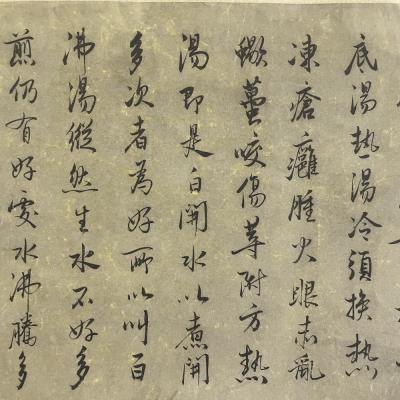 底湯熱湯冷須換熱
凍瘡癱腫火眼赤亂
蠍蠆咬傷等附方熱
湯即是白開水以煮開
多次者為好所以叫百
沸湯縱然生水不好多
煎仍有好處水沸騰多